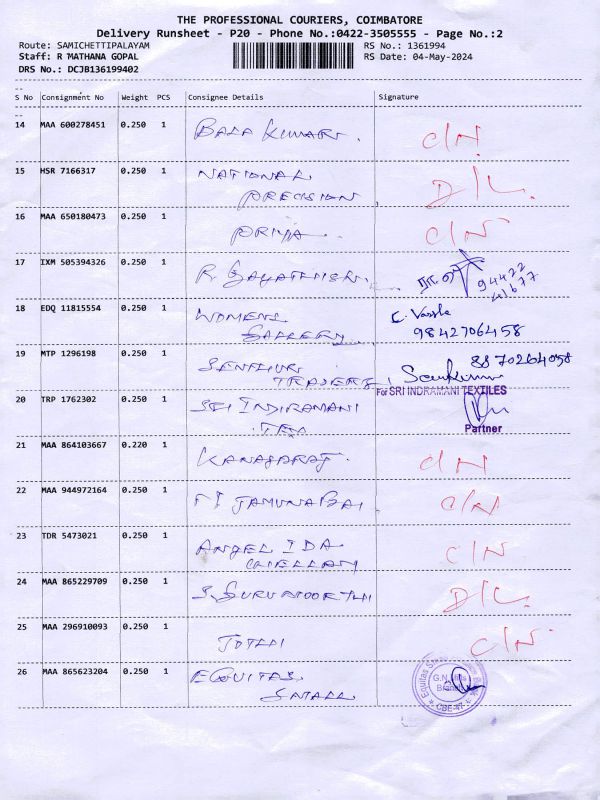 THE PROFESSIONAL COURIERS, COIMBATORE
Delivery Runsheet - P20 - Phone No.:0422-3505555 - Page No.:2
Route: SAMICHETTIPALAYAM RS No.: 1361994
Staff: R MATHANA GOPAL RS Date: 04-May-2024
DRS No.: DCJB136199402
--
S No Consignment No Weight PCS Consignee Details Signature
--
14 MAA 600278451 0.250 1 BALA KUMAR. C/N.
15 HSR 7166317 0.250 1 NATIONAL D/L.
PRECISION
16 MAA 650180473 0.250 1 PRIYA. C/N
17 IXM 505394326 0.250 1 R. GAYATHIRI. 94422
41677
18 EDQ 11815554 0.250 1 WOMENS C.
GALLERY 9842706458
19 MTP 1296198 0.250 1 SENTHUR 8870264058
TRADERS
For SRI INDRAMANI TEXTILES
20 TRP 1762302 0.250 1 SRI INDIRAMANI
TEX Partner
21 MAA 864103667 0.220 1 KANAGARAJ. C/N
22 MAA 944972164 0.250 1 JAMUNA BAI C/N
23 TDR 5473021 0.250 1 ANGEL IDA C/N
CHELLAM
24 MAA 865229709 0.250 1 S. GURUMOORTHI D/L.
25 MAA 296910093 0.250 1 JOTHI C/N
26 MAA 865623204 0.250 1 EQUITAS
SMALL
Equitas
G.N. Mills
Branch
CBE-47